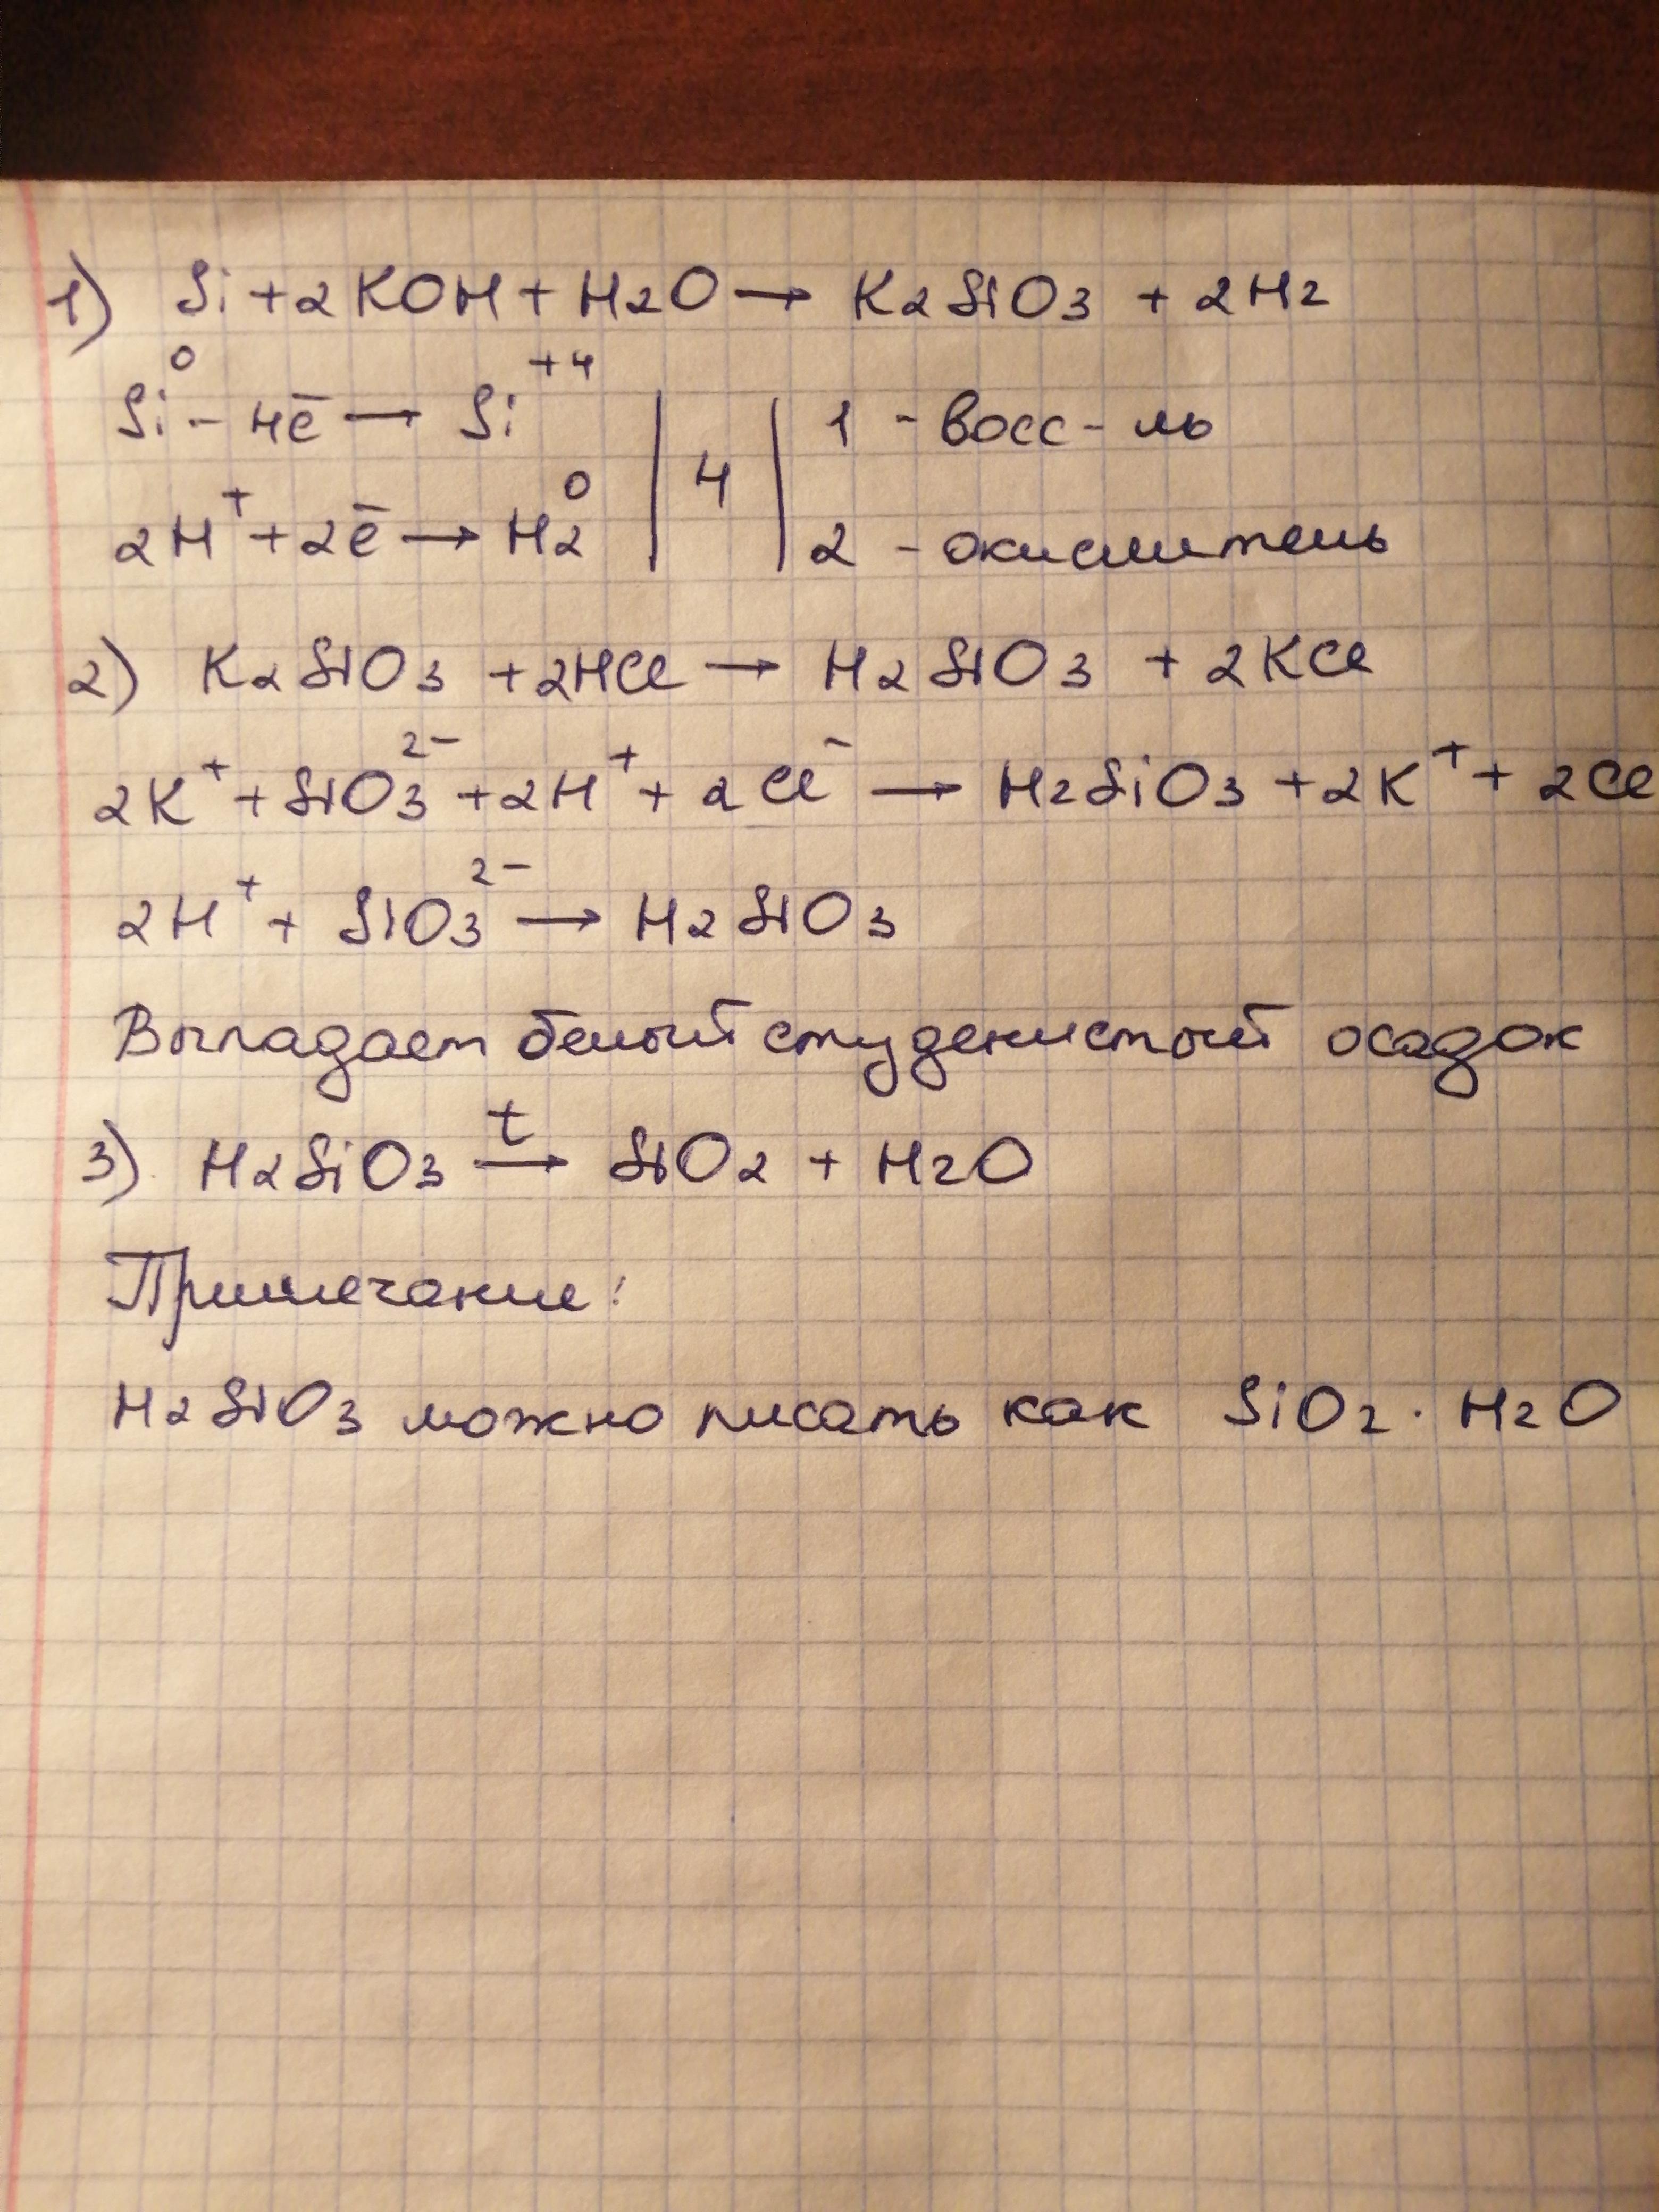 1) Si + 2KOH + H2O → K2SiO3 + 2H2
Si⁰ - 4ē → Si⁺⁴ | 4 | 1 - восс-ль
2H⁺ + 2ē → H2⁰ | 4 | 2 - окислитель
2) K2SiO3 + 2HCl → H2SiO3 + 2KCl
2K⁺ + SiO3²⁻ + 2H⁺ + 2Cl⁻ → H2SiO3 + 2K⁺ + 2Cl
2H⁺ + SiO3²⁻ → H2SiO3
Выпадает белый студенистый осадок
3) H2SiO3 →ᵗ SiO2 + H2O
Примечание:
H2SiO3 можно писать как SiO2 · H2O